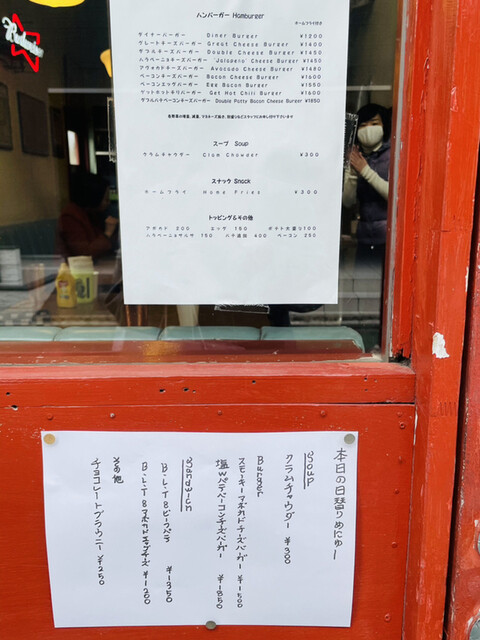 ハンバーガー Hamburger
ホームフライ付き
ダイナーバーガー Diner Burger ¥1200
グレートチーズバーガー Great Cheese Burger ¥1400
ダブルチーズバーガー Double Cheese Burger ¥1450
ハラペーニョチーズバーガー Jalapeno Cheese Burger ¥1450
アボカドチーズバーガー Avocado Cheese Burger ¥1480
ベーコンチーズバーガー Bacon Cheese Burger ¥1600
ベーコンエッグバーガー Egg Bacon Burger ¥1550
ゲットホットチリバーガー Get Hot Chili Burger ¥1600
ダブルパテベーコンチーズバーガー Double Patty Bacon Cheese Burger ¥1850
スープ Soup
クラムチャウダー Clam Chowder ¥300
スナック Snack
ホームフライ Home Fries ¥300
トッピング&その他
アボカド 200 エッグ 150 ポテト大盛り100
ハラペーニョ&サルサ 150 パテ追加 400 ベーコン 250
本日の日替りめにゅー
Soup
クラムチャウダー ¥300
Burger
スモーキーアボカドチーズバーガー ¥1500
塩Wパテベーコンチーズバーガー ¥1850
Sandwich
B・L・T&ビーフパテ ¥1350
B・L・T&アボカドエッグチーズ ¥1200
その他
チョコレートブラウニー ¥250